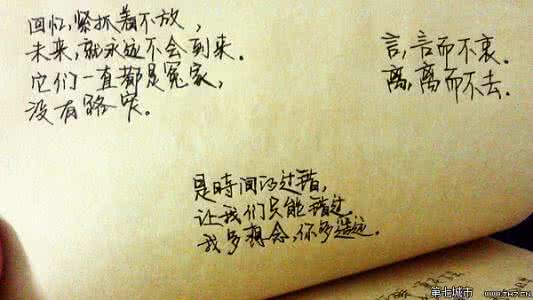 回忆,紧抓着不放,
未来,就永远不会到来.
它们一直都是冤家,
没有路窄.
言,言而不衷.
离,离而不去.
是时间的过错,
让我们只能错过
我多想念,你多遥远.
第七城市 WWW.TH7.CN